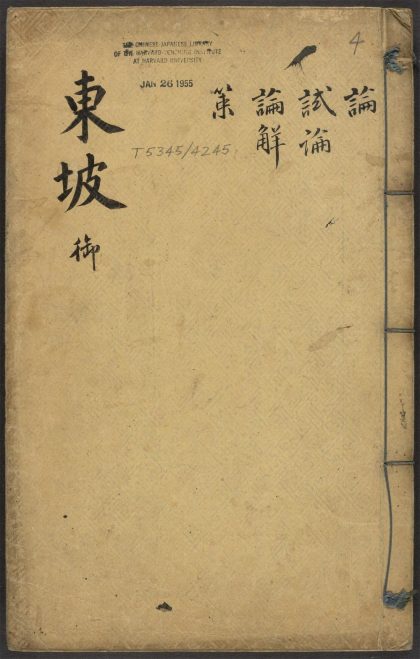 4
論
試論
論解
策
THE CHINESE-JAPANESE LIBRARY
OF THE HARVARD-YENCHING INSTITUTE
AT HARVARD UNIVERSITY
JAN 26 1955
T5345/4245
東坡
御